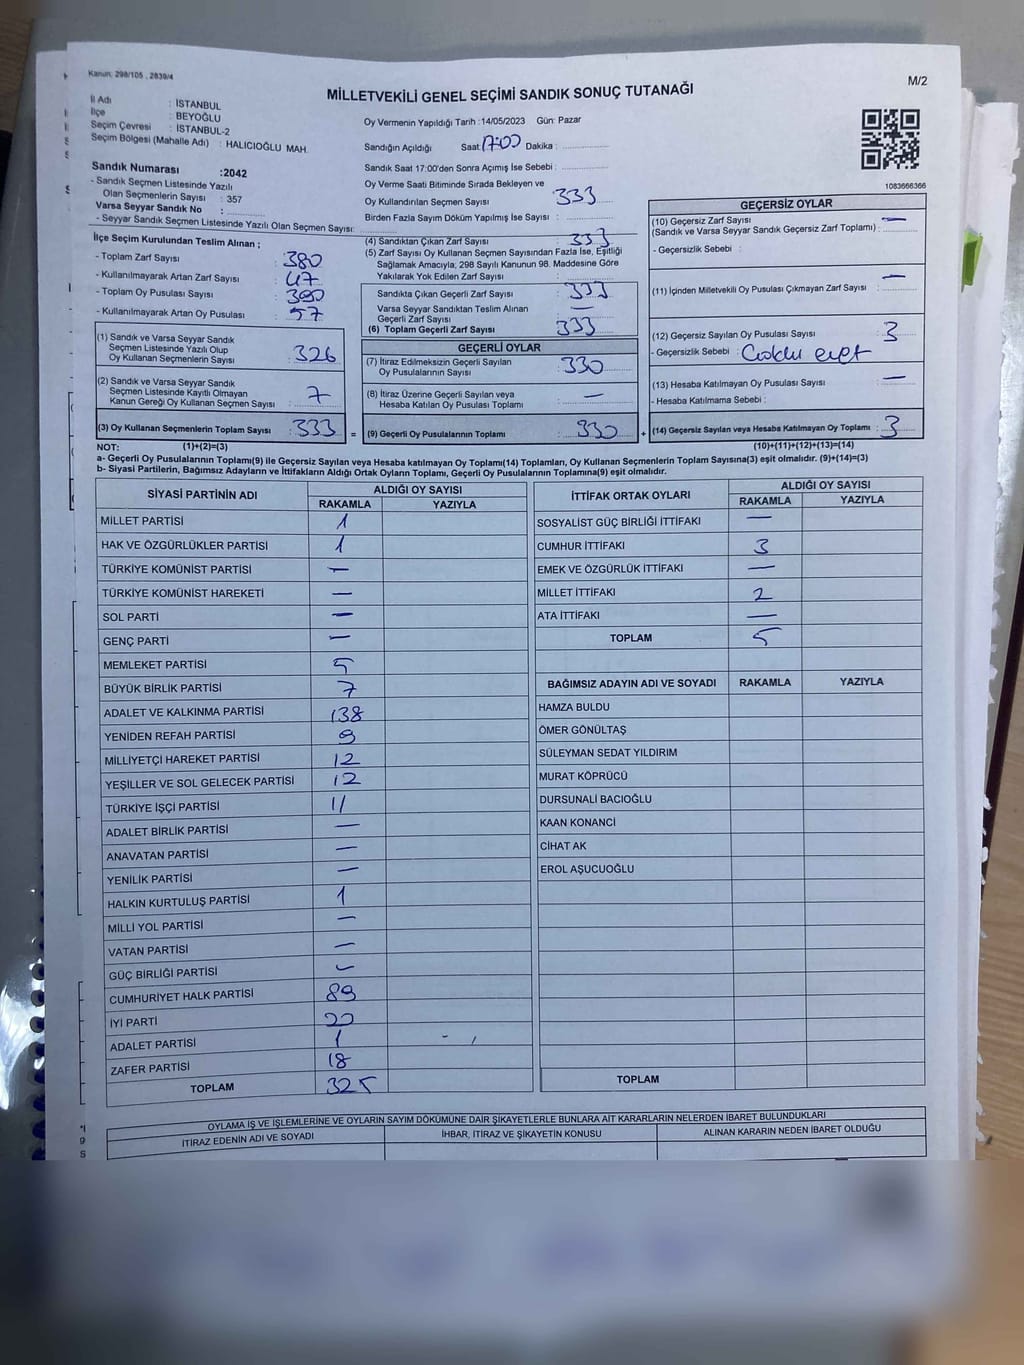 Kanun: 298/105 , 2839/4
M/2
MİLLETVEKİLİ GENEL SEÇİMİ SANDIK SONUÇ TUTANAĞI
İl Adı : İSTANBUL
İlçe : BEYOĞLU
Seçim Çevresi : İSTANBUL-2
Seçim Bölgesi (Mahalle Adı) : HALICIOĞLU MAH.
Sandık Numarası :2042
- Sandık Seçmen Listesinde Yazılı
Olan Seçmenlerin Sayısı : 357
Varsa Seyyar Sandık No :
- Seyyar Sandık Seçmen Listesinde Yazılı Olan Seçmen Sayısı:
Oy Vermenin Yapıldığı Tarih :14/05/2023 Gün: Pazar
Sandığın Açıldığı Saat 17:00 Dakika :
Sandık Saat 17:00'den Sonra Açımış İse Sebebi :
Oy Verme Saati Bitiminde Sırada Bekleyen ve
Oy Kullandırılan Seçmen Sayısı : 333
Birden Fazla Sayım Döküm Yapılmış İse Sayısı :
1083666366
İlçe Seçim Kurulundan Teslim Alınan ;
- Toplam Zarf Sayısı : 380
- Kullanılmayarak Artan Zarf Sayısı : 47
- Toplam Oy Pusulası Sayısı : 390
- Kullanılmayarak Artan Oy Pusulası : 57
(1) Sandık ve Varsa Seyyar Sandık
Seçmen Listesinde Yazılı Olup
Oy Kullanan Seçmenlerin Sayısı : 326
(2) Sandık ve Varsa Seyyar Sandık
Seçmen Listesinde Kayıtlı Olmayan
Kanun Gereği Oy Kullanan Seçmen Sayısı : 7
(3) Oy Kullanan Seçmenlerin Toplam Sayısı : 333
(4) Sandıktan Çıkan Zarf Sayısı : 333
(5) Zarf Sayısı Oy Kullanan Seçmen Sayısından Fazla İse, Eşitliği
Sağlamak Amacıyla, 298 Sayılı Kanunun 98. Maddesine Göre
Yakılarak Yok Edilen Zarf Sayısı :
Sandıkta Çıkan Geçerli Zarf Sayısı : 333
Varsa Seyyar Sandıktan Teslim Alınan
Geçerli Zarf Sayısı :
(6) Toplam Geçerli Zarf Sayısı : 333
GEÇERLİ OYLAR
(7) İtiraz Edilmeksizin Geçerli Sayılan
Oy Pusulalarının Sayısı : 330
(8) İtiraz Üzerine Geçerli Sayılan veya
Hesaba Katılan Oy Pusulası Toplamı : —
= (9) Geçerli Oy Pusulalarının Toplamı : 330
GEÇERSİZ OYLAR
(10) Geçersiz Zarf Sayısı —
(Sandık ve Varsa Seyyar Sandık Geçersiz Zarf Toplamı) :
- Geçersizlik Sebebi :
(11) İçinden Milletvekili Oy Pusulası Çıkmayan Zarf Sayısı : —
(12) Geçersiz Sayılan Oy Pusulası Sayısı : 3
- Geçersizlik Sebebi :
(13) Hesaba Katılmayan Oy Pusulası Sayısı : —
- Hesaba Katılmama Sebebi :
+ (14) Geçersiz Sayılan veya Hesaba Katılmayan Oy Toplamı : 3
NOT: (1)+(2)=(3) (10)+(11)+(12)+(13)=(14)
a- Geçerli Oy Pusulalarının Toplamı(9) ile Geçersiz Sayılan veya Hesaba katılmayan Oy Toplamı(14) Toplamları, Oy Kullanan Seçmenlerin Toplam Sayısına(3) eşit olmalıdır. (9)+(14)=(3)
b- Siyasi Partilerin, Bağımsız Adayların ve İttifakların Aldığı Ortak Oyların Toplamı, Geçerli Oy Pusulalarının Toplamına(9) eşit olmalıdır.
SİYASİ PARTİNİN ADI ALDIĞI OY SAYISI
RAKAMLA YAZIYLA
MİLLET PARTİSİ 1
HAK VE ÖZGÜRLÜKLER PARTİSİ 1
TÜRKİYE KOMÜNİST PARTİSİ —
TÜRKİYE KOMÜNİST HAREKETİ —
SOL PARTİ —
GENÇ PARTİ —
MEMLEKET PARTİSİ 5
BÜYÜK BİRLİK PARTİSİ 7
ADALET VE KALKINMA PARTİSİ 138
YENİDEN REFAH PARTİSİ 9
MİLLİYETÇİ HAREKET PARTİSİ 12
YEŞİLLER VE SOL GELECEK PARTİSİ 12
TÜRKİYE İŞÇİ PARTİSİ 11
ADALET BİRLİK PARTİSİ —
ANAVATAN PARTİSİ —
YENİLİK PARTİSİ —
HALKIN KURTULUŞ PARTİSİ 1
MİLLİ YOL PARTİSİ —
VATAN PARTİSİ —
GÜÇ BİRLİĞİ PARTİSİ —
CUMHURİYET HALK PARTİSİ 89
İYİ PARTİ 20
ADALET PARTİSİ 1
ZAFER PARTİSİ 18
TOPLAM 325
İTTİFAK ORTAK OYLARI ALDIĞI OY SAYISI
RAKAMLA YAZIYLA
SOSYALİST GÜÇ BİRLİĞİ İTTİFAKI —
CUMHUR İTTİFAKI 3
EMEK VE ÖZGÜRLÜK İTTİFAKI —
MİLLET İTTİFAKI 2
ATA İTTİFAKI —
TOPLAM 5
BAĞIMSIZ ADAYIN ADI VE SOYADI RAKAMLA YAZIYLA
HAMZA BULDU
ÖMER GÖNÜLTAŞ
SÜLEYMAN SEDAT YILDIRIM
MURAT KÖPRÜCÜ
DURSUNALİ BACIOĞLU
KAAN KONANCİ
CİHAT AK
EROL AŞUCUOĞLU
TOPLAM
OYLAMA İŞ VE İŞLEMLERİNE VE OYLARIN SAYIM DÖKÜMÜNE DAİR ŞİKAYETLERLE BUNLARA AİT KARARLARIN NELERDEN İBARET BULUNDUKLARI
İTİRAZ EDENİN ADI VE SOYADI İHBAR, İTİRAZ VE ŞİKAYETİN KONUSU ALINAN KARARIN NEDEN İBARET OLDUĞU